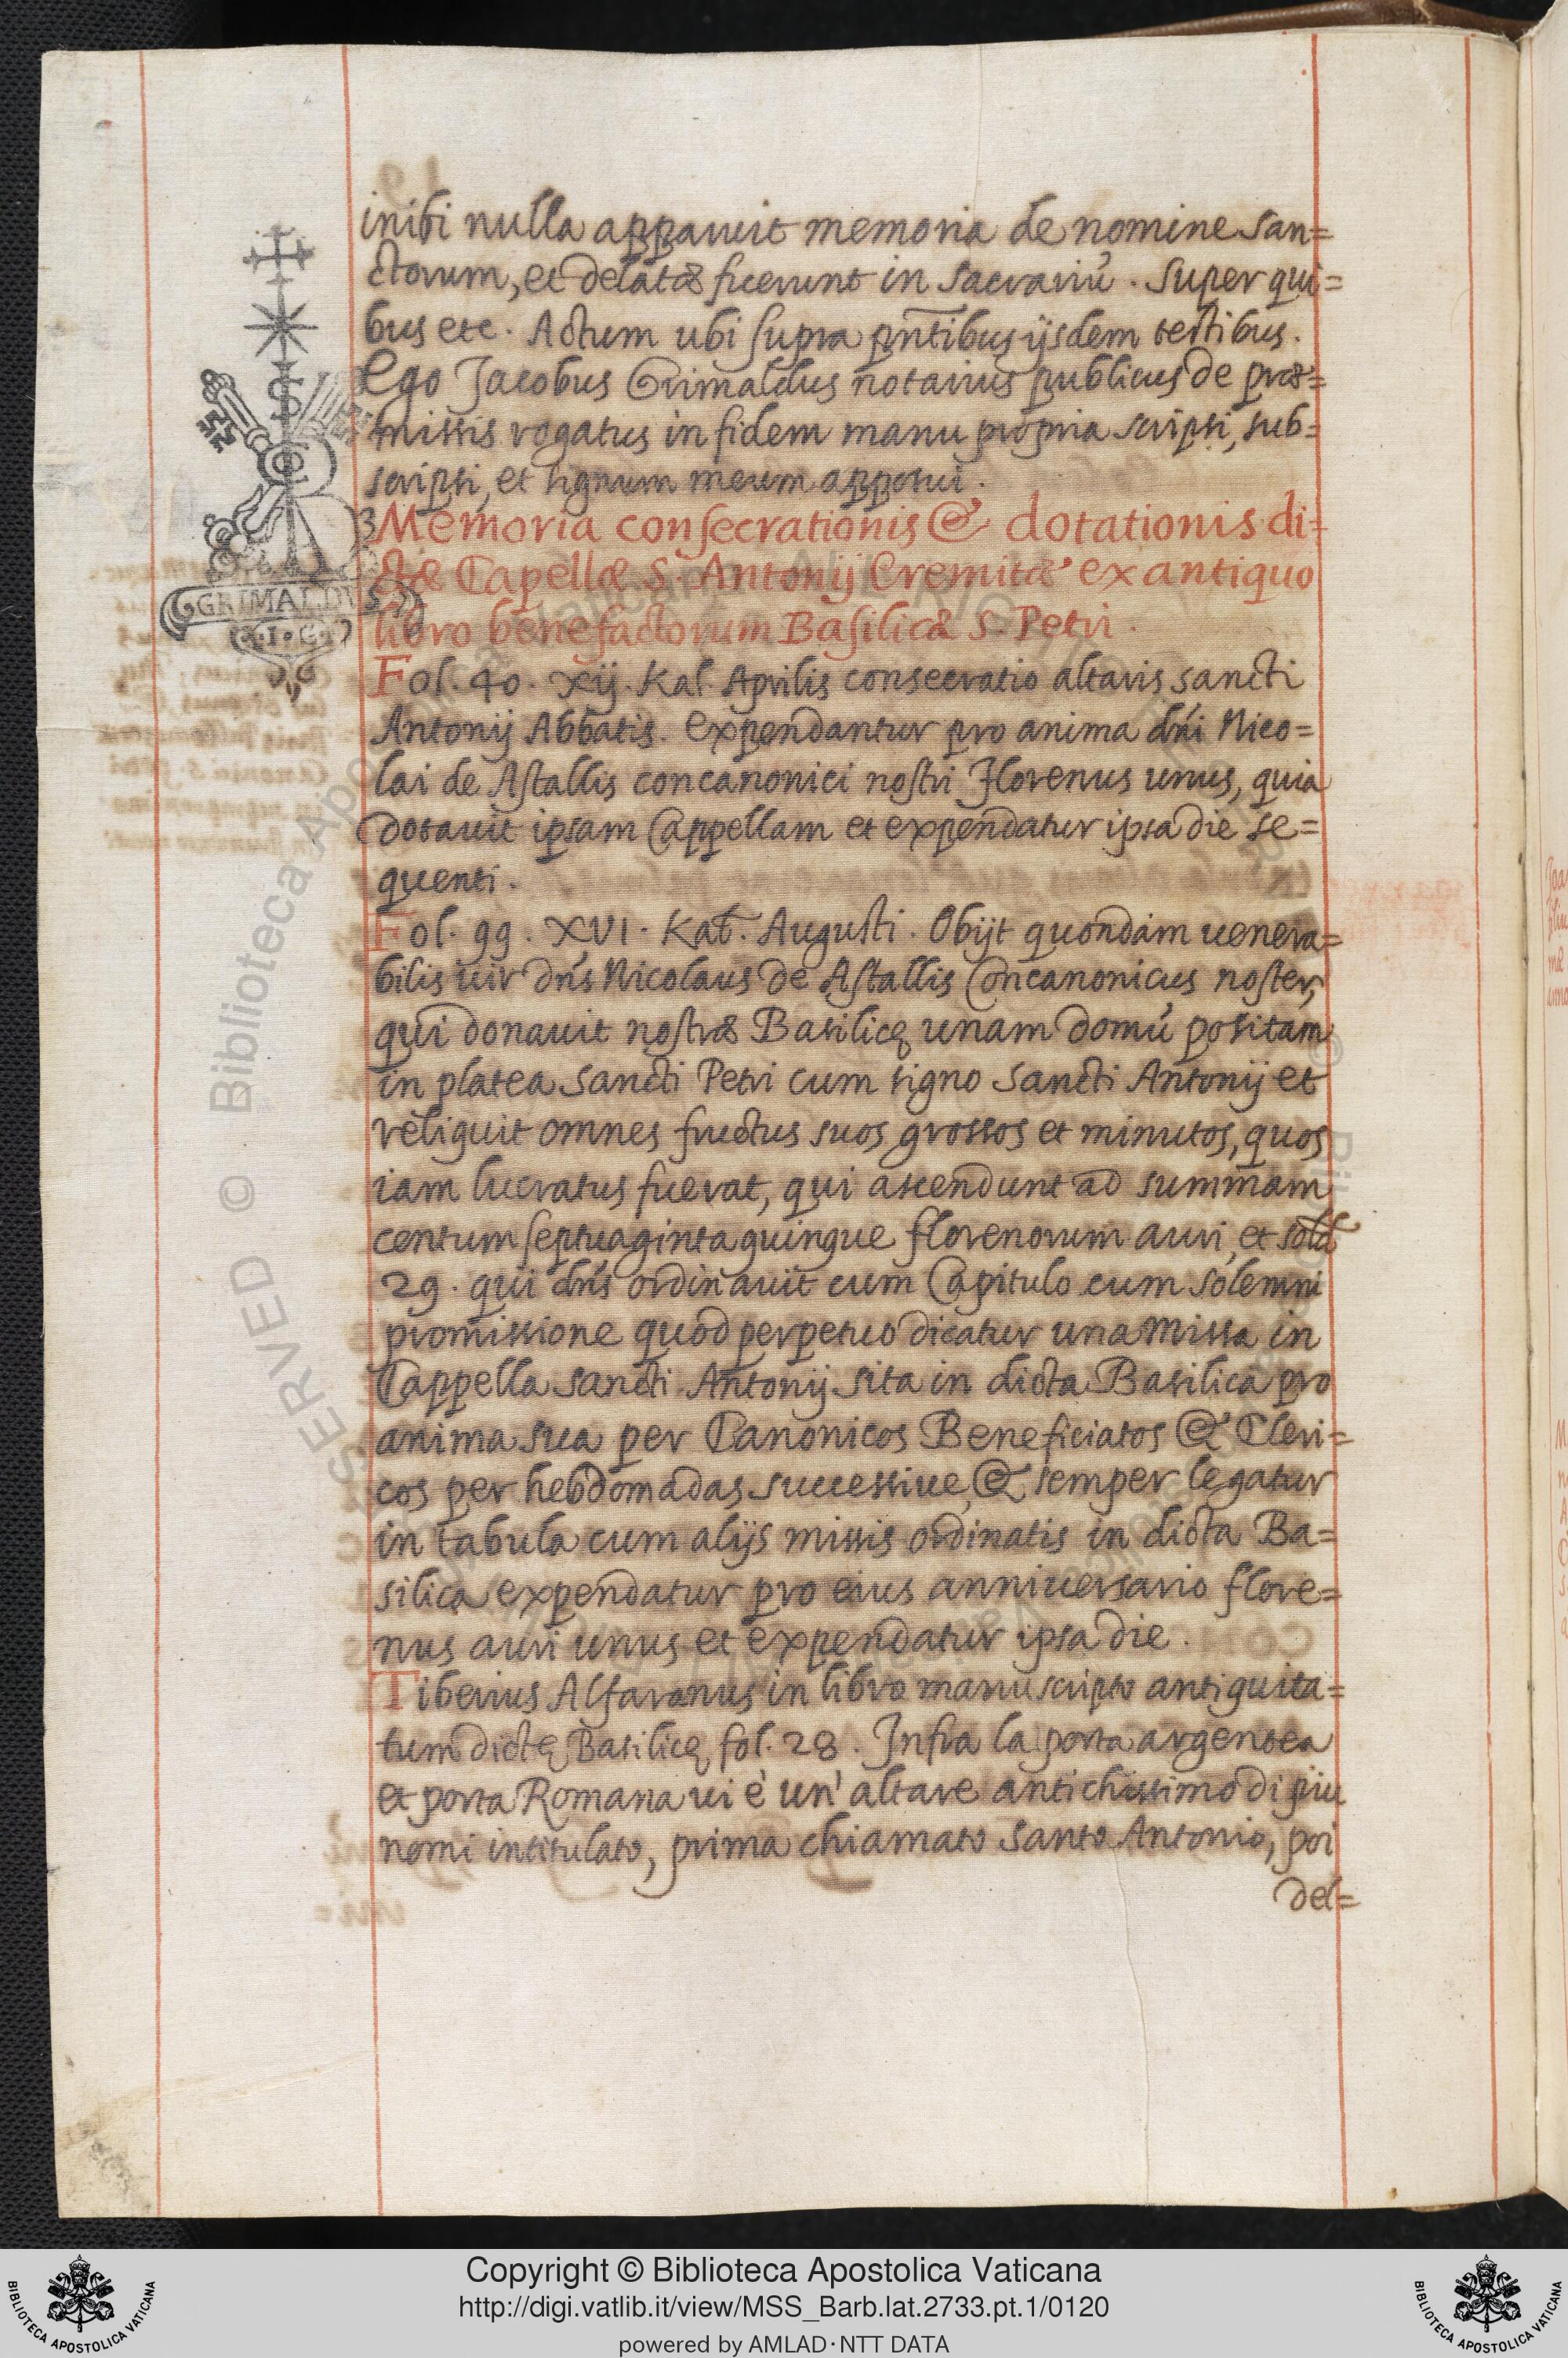 inibi nulla apparuit memoria de nomine san=
ctorum, et delatæ fuerunt in sacrariu᷃. super qui=
bus etc. Actum ubi supra pn̄tibus ijsdem testibus.
Ego Jacobus Grimaldus notarius publicus de præ=
missis rogatus in fidem manu propria scripsi, sub=
scripsi, et signum meum apposui.
GRIMALDVS
.I.G.
Memoria consecrationis & dotationis di=
ctæ Capellæ S. Antonij Eremitæ ex antiquo
libro benefactorum Basilicæ S. Petri.
Fol. 40. xij. Kal. Aprilis consecratio altaris sancti
Antonij Abbatis. expendantur pro anima dn̄i Nico=
lai de Astallis concanonici nostri Florenus unus, quia
dotauit ipsam Cappellam et expendatur ipsa die se=
quenti.
Fol. 99. XVI. Kal. Augusti. Obijt quondam uenera=
bilis uir dn̄s Nicolaus de Astallis Concanonicus noster,
qui donauit nostræ Basilicę unam domū positam
in platea sancti Petri cum signo sancti Antonij et
reliquit omnes fructus suos grossos et minutos, quos
iam lucratus fuerat, qui ascendunt ad summam
centum septuaginta quinque florenorum auri, et sold
29. qui dn̄s ordinauit cum Capitulo cum solemni
promissione quod perpetuo dicatur una missa in
Cappella sancti Antonij sita in dicta Basilica pro
anima sua per Canonicos Beneficiatos & Cleri=
cos per hebdomadas successiue, & semper legatur
in tabula cum alijs missis ordinatis in dicta Ba=
silica expendatur pro eius anniuersario flore=
nus auri unus et expendatur ipsa die.
Tiberius Alfaranus in libro manuscripto antiquita=
tum dictę Basilicę fol. 28. Infra la porta argentea
et porta Romana ui è un' altare antichissimo di piu
nomi intitulato, prima chiamato santo Antonio, poi
del=
Copyright © Biblioteca Apostolica Vaticana
http://digi.vatlib.it/view/MSS_Barb.lat.2733.pt.1/0120
powered by AMLAD·NTT DATA
BIBLIOTECA APOSTOLICA VATICANA
BIBLIOTECA APOSTOLICA VATICANA